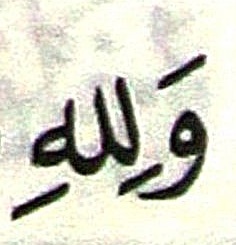 وَلِلهِ